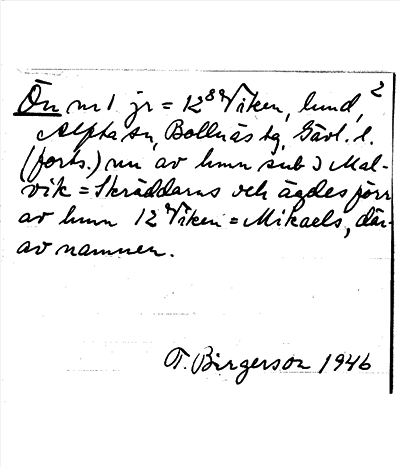 2
Ön nr 1 jr = 12⁸⁹ Viken, lund,
Alfta sn, Bollnäs tg, Gävl. l.
(forts.) nu av hmn sub 3 Mal-
vik = Skräddarns och ägdes förr
av hmn 12 Viken = Mikaels, där-
av namnen.
T. Birgerson 1946